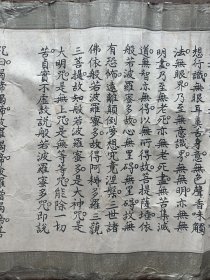 想行識無眼耳鼻舌身意無色聲香味觸
法無眼界乃至無意識界無無明亦無無
明盡乃至無老死亦無老死盡無苦集滅
道無智亦無得以無所得故菩提薩埵依
般若波羅蜜多故心無罣礙無罣礙故無
有恐怖遠離顛倒夢想究竟涅槃三世諸
佛依般若波羅蜜多故得阿耨多羅三藐
三菩提故知般若波羅蜜多是大神咒是
大明咒是無上咒是無等等咒能除一切
苦真實不虛故說般若波羅蜜多咒即說